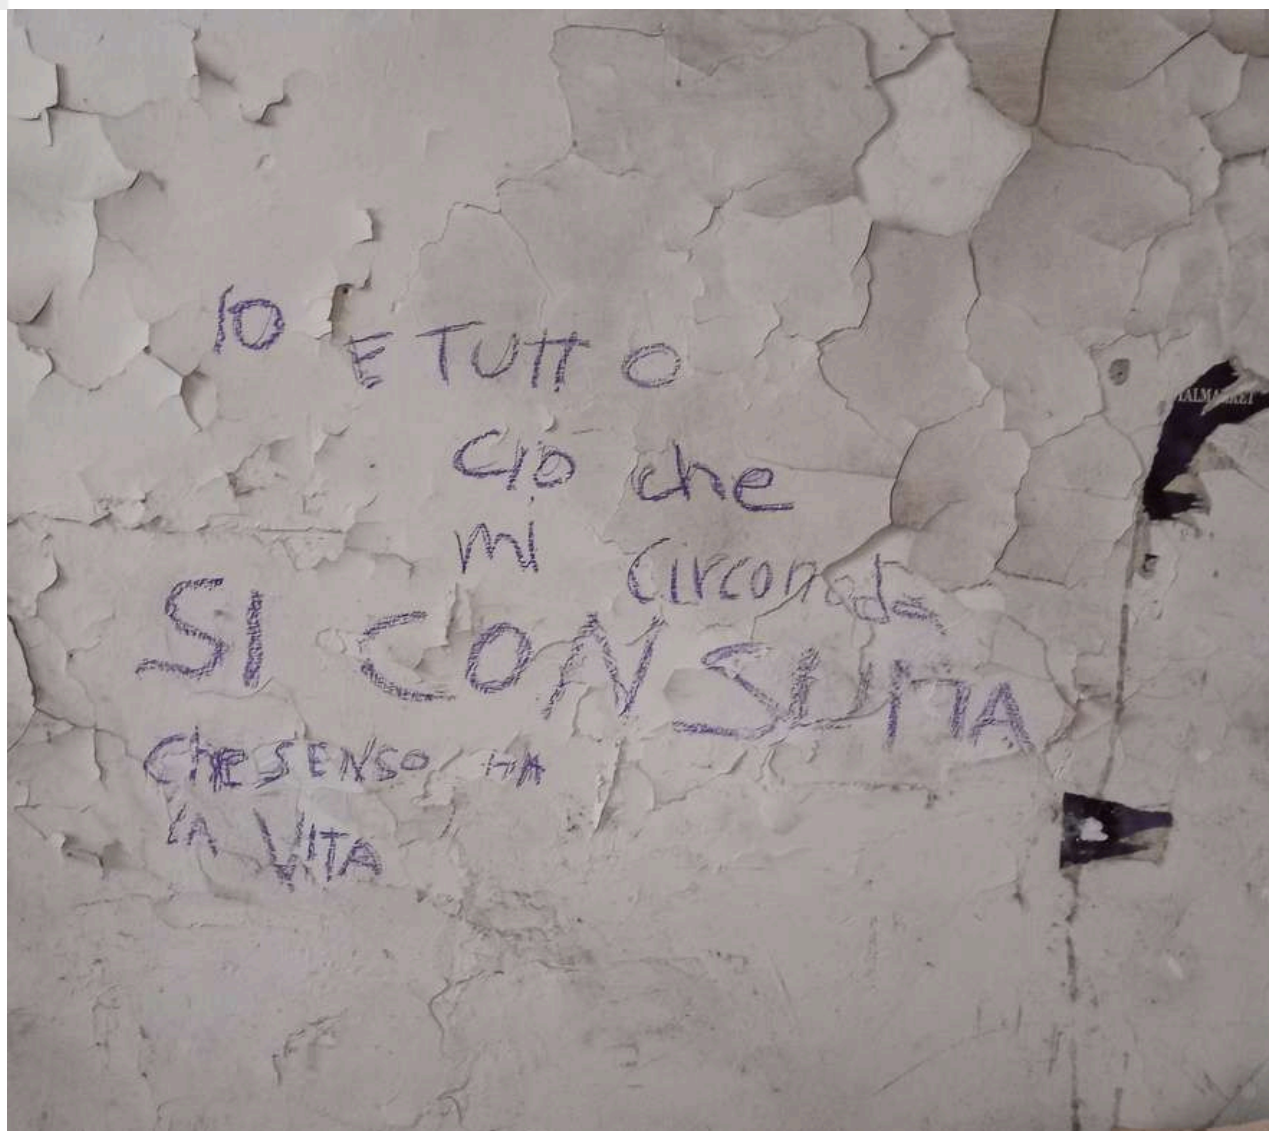 IO
E TUTTO
CIÒ che
mi circonda
SI CONSUMA
Che SENSO HA
LA VITA